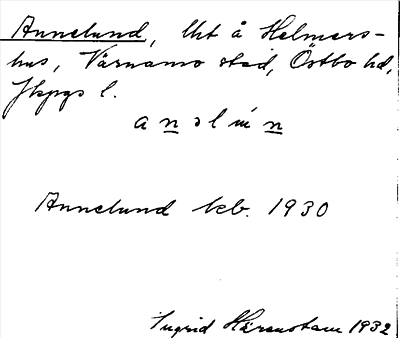 Annelund, lht å Helmers-
hus, Värnamo stad, Östbo hd,
Jkpgs l.
a n ə l ɯ́ n
Annelund kb. 1930
Ingrid Härenstam 1932